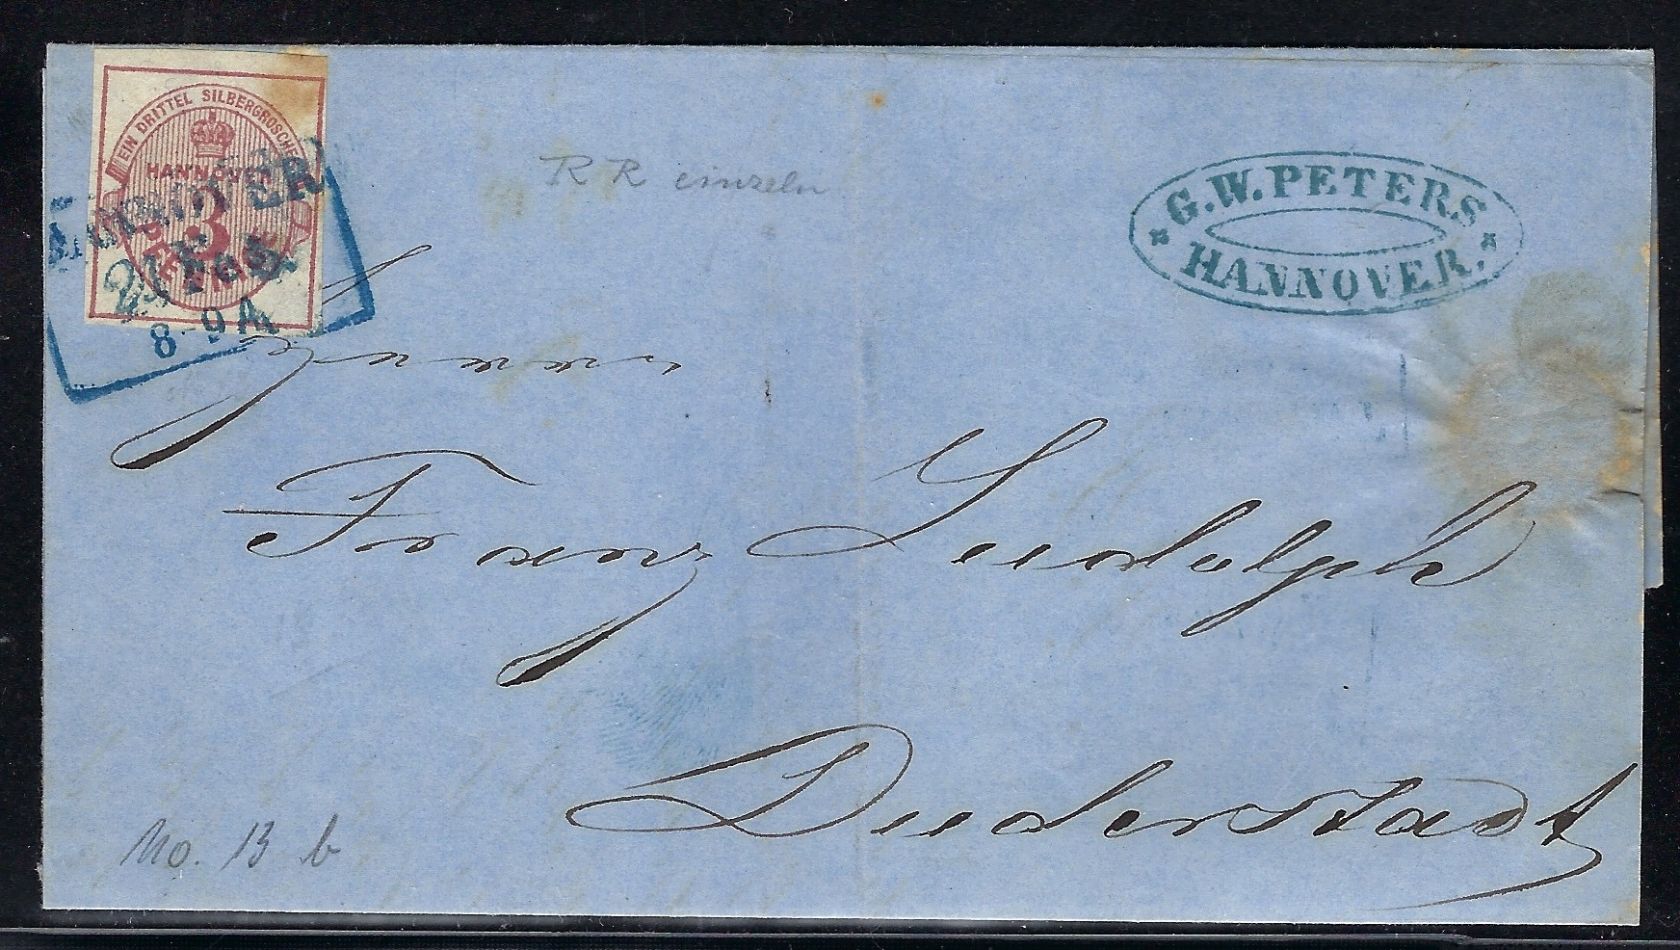 EIN DRITTEL SILBERGROSCHEN
HANNOVER
3
PFENNIGE
HANNOVER
Feb
8-9 A
RR einzeln
G. W. PETERS
HANNOVER.
Herrn
Franz Ludolph
Duderstadt
No. 13 b